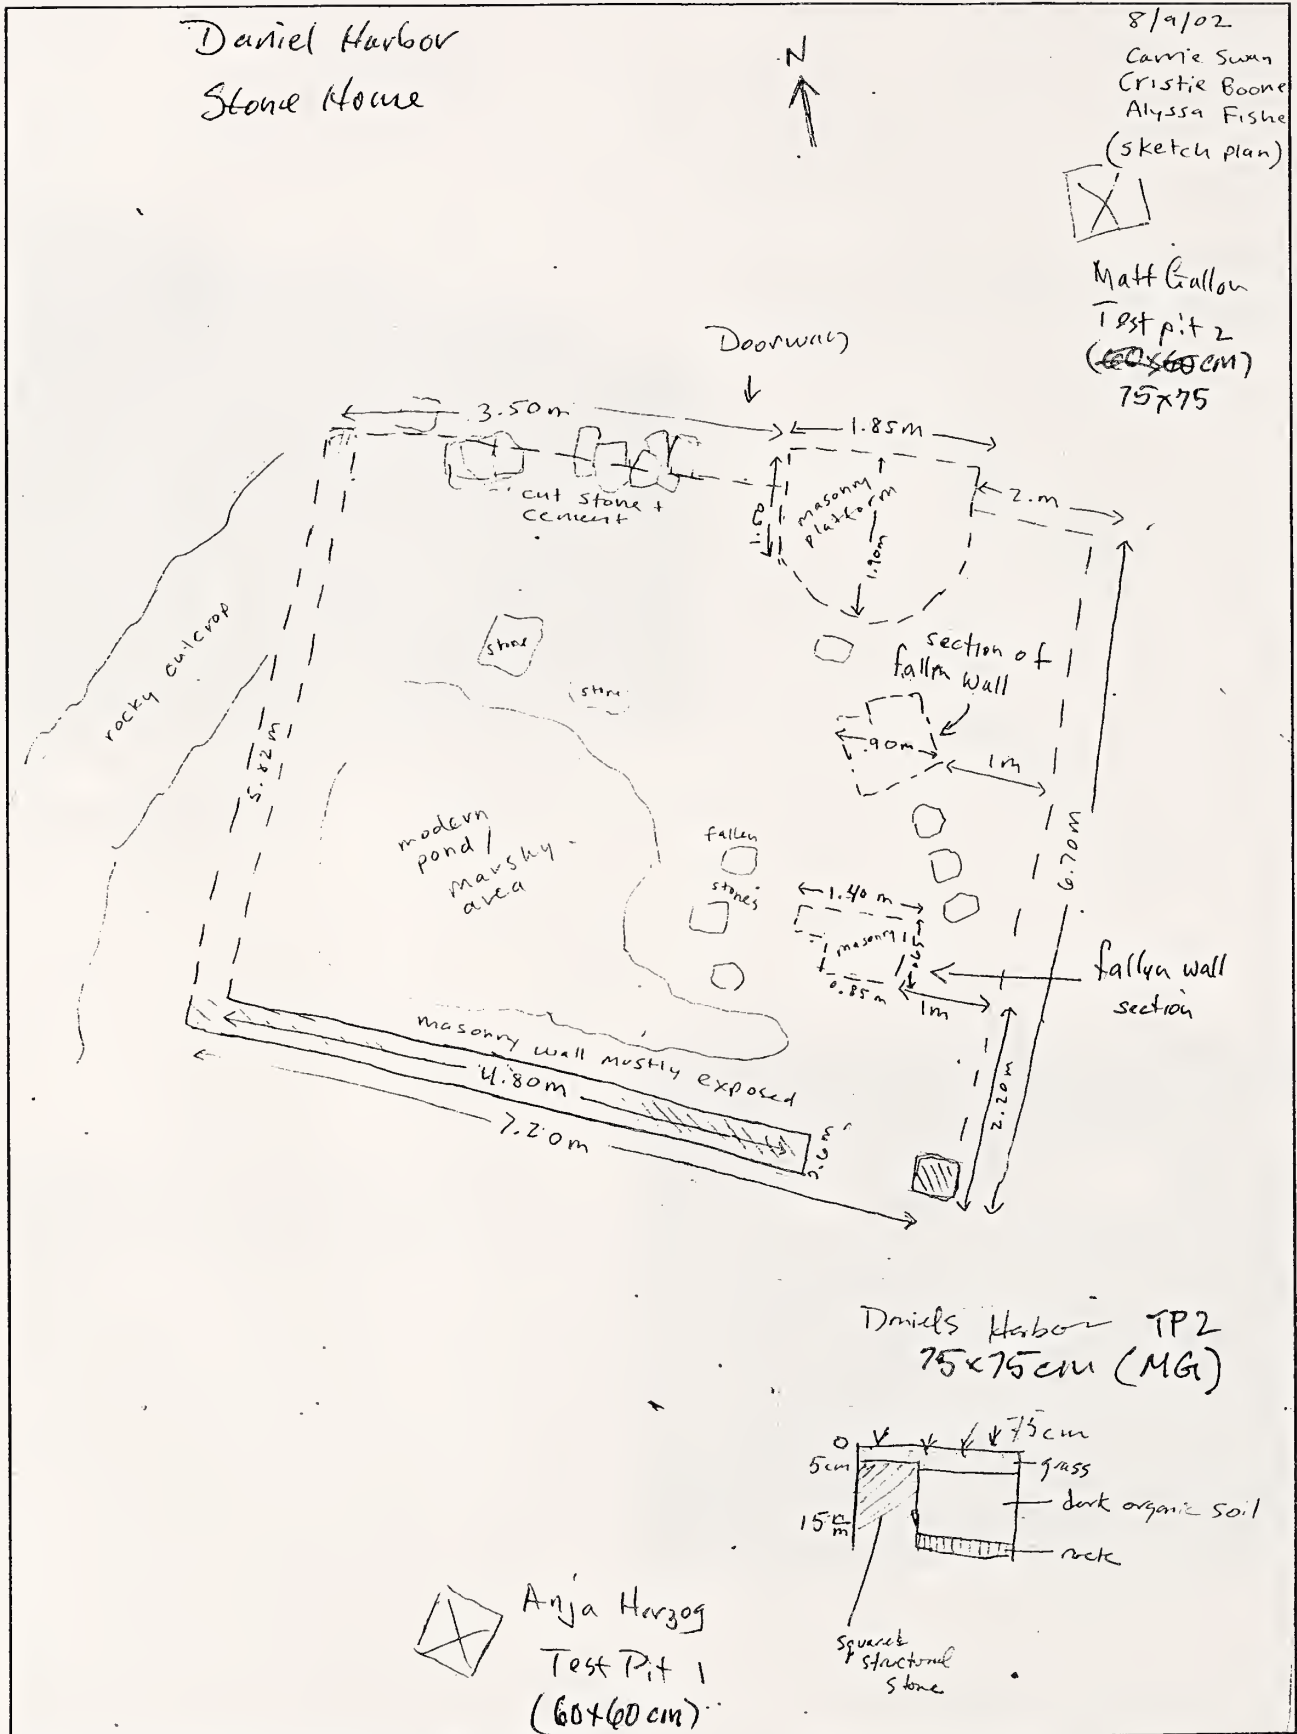 Daniel Harbor
Stone House
N
8/9/02
Carrie Swan
Cristie Boone
Alyssa Fishe
(sketch plan)
Matt Gallon
Test pit 2
(60x60 cm)
75x75
Doorway
3.50m
1.85m
2.m
cut stone +
cement
masonry
platform
1.90m
rocky outcrop
stone
stone
section of
fallen wall
.90m
1m
5.82m
6.70m
modern
pond /
marshy
area
fallen
stones
1.40 m
masonry
0.85m
1m
fallen wall
section
masonry wall mostly exposed
4.80m
7.20m
2.20m
Daniels Harbor TP2
75x75cm (MG)
0
75cm
5cm
grass
dark organic soil
15cm
rock
squared
structural
stone
Anja Herzog
Test Pit 1
(60x60 cm)